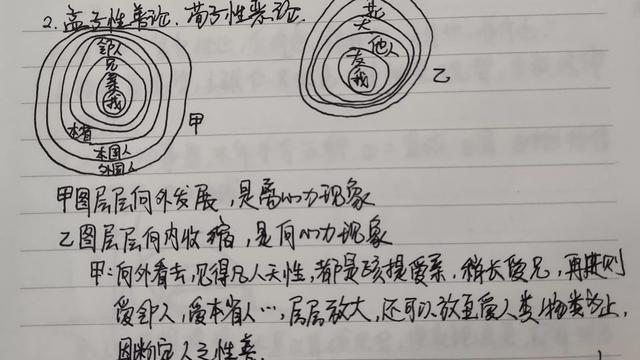 2. 孟子性善论. 荀子性恶论.
邻人
兄
亲
我
本省
本国人
外国人
甲
花
犬
他人
友
我
乙
甲图层层向外发展,是离心力现象
乙图层层向内收缩,是向心力现象
甲:向外看去,见得凡人天性,都是孩提爱亲,稍长爱兄,再进则
爱邻人,爱本省人…,层层放大,还可以放至爱人类物类为止,
因断定人之性善.